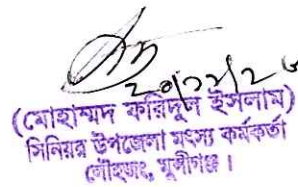 ২০/১১/২৫
(মোহাম্মদ ফরিদুল ইসলাম)
সিনিয়র উপজেলা মৎস্য কর্মকর্তা
লৌহজং, মুন্সীগঞ্জ।